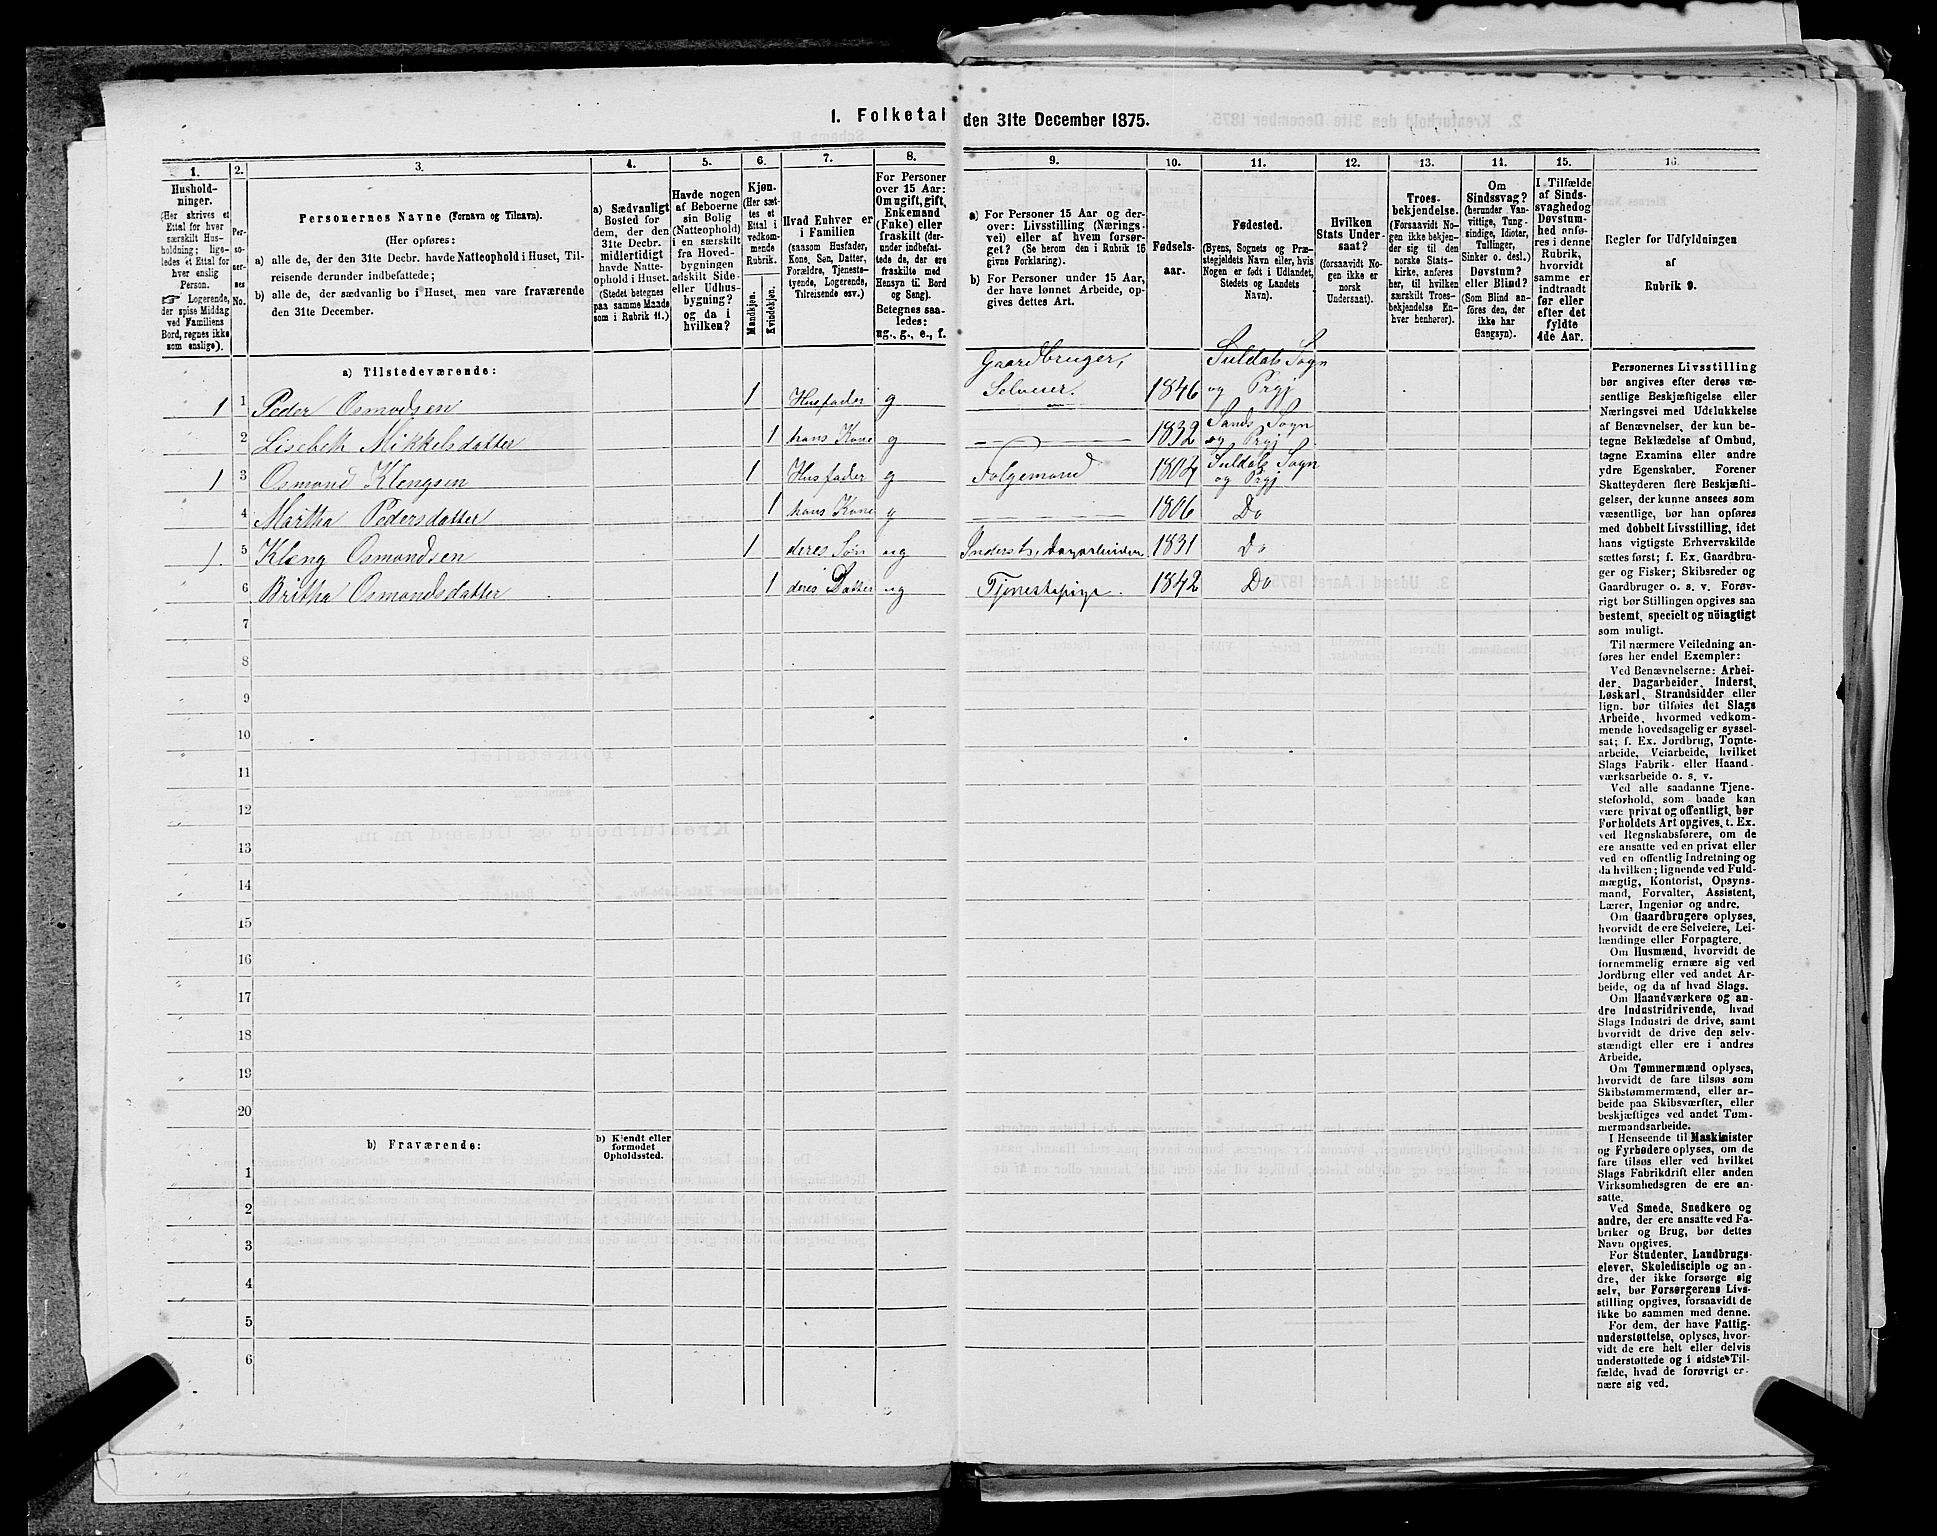 1. Folketal den 31te December 1875.
1.
2.
3.
4.
5.
6.
7.
8.
9.
10.
11.
12.
13.
14.
15.
16.
Hushold-
ninger.
(Her skrives et
Ettal for hver
særskilt Hus-
holdning; lige-
ledes et Ettal for
hver enslig
Person.
☞ Logerende,
der spise Middag
ved Familiens
Bord, regnes ikke
som enslige).
Per-
so-
ner-
nes
No.
Personernes Navne (Fornavn og Tilnavn).
(Her opføres:
a) alle de, der den 31te Decbr. havde Natteophold i Huset, Til-
reisende derunder indbefattede;
b) alle de, der sædvanlig bo i Huset, men vare fraværende
den 31te December.
a) Sædvanligt
Bosted for
dem, der den
31te Decbr.
midlertidigt
havde Natte-
ophold i Huset.
(Stedet betegnes
paa samme Maade
som i Rubrik 11.)
Havde nogen
af Beboerne
sin Bolig
(Natteophold)
i en særskilt
fra Hoved-
bygningen
adskilt Side-
eller Udhus-
bygning?
og da i
hvilken?
Kjøn.
(Her sæt-
tes et
Ettal i
vedkom-
mende
Rubrik.
Mandkjøn.
Kvindekjøn.
Hvad Enhver er
i Familien
(saasom Husfader,
Kone, Søn, Datter,
Forældre, Tjeneste-
tyende, Logerende,
Tilreisende osv.)
For Personer
over 15 Aar:
Om ugift, gift,
Enkemand
(Enke) eller
fraskilt (der-
under indbefat-
tede de, der ere
fraskilte med
Hensyn til Bord
og Seng).
Betegnes saa-
ledes:
ug., g., e., f.
a) For Personer 15 Aar og der-
over: Livsstilling (Nærings-
vei) eller af hvem forsør-
get? (Se herom den i Rubrik 16
givne Forklaring).
b) For Personer under 15 Aar,
der have lønnet Arbeide, op-
gives dettes Art.
Fødsels-
aar.
Fødested.
(Byens, Sognets og Præ-
stegjeldets Navn eller, hvis
Nogen er født i Udlandet,
Stedets og Landets
Navn).
Hvilken
Stats Under-
saat?
(forsaavidt No-
gen ikke er
norsk
Undersaat).
Troes-
bekjendelse.
(Forsaavidt No-
gen ikke bekjen-
der sig til den
norske Stats-
kirke, anføres
her, til hvilken
særskilt Troes-
bekjendelse En-
hver henhører).
Om
Sindssvag?
(herunder Van-
vittige, Tung-
sindige, Idioter,
Tullinger,
Sinker o. desl.)
Døvstum?
eller Blind?
(Som Blind an-
føres den, der
ikke har
Gangsyn).
I Tilfælde
af Sinds-
svaghed og
Døvstum-
hed anfø-
res i denne
Rubrik,
hvorvidt
samme er
indtraadt
før eller
efter det
fyldte
4de Aar.
Regler for Udfyldningen
af
Rubrik 9.
a) Tilstedeværende:
1 1 Peder Osmodsen 1 Husfader g Gaardbruger, Selveier. 1846 Suldals Sogn og Prgj
2 Lisebeth Mikkelsdatter 1 hans Kone g — — 1832 Sands Sogn og Prgj
1 3 Osmond Klengsen 1 Husfader g Folgemand 1804 Suldals Sogn og Prgj
4 Martha Pedersdatter 1 hans Kone g — 1806 Do
1. 5 Klæng Osmondsen 1 deres Søn ug Inderst, Dagarbeider 1831 Do
6 Britha Osmondsdatter 1 deres Datter ug Tjenestepige. 1842 Do
7
8
9
10
11
12
13
14
15
16
17
18
19
20
b) Fraværende:
b) Kjendt eller
formodet
Opholdssted.
1
2
3
4
5
6
Personernes Livsstilling
bør angives efter deres væ-
sentlige Beskjæftigelse eller
Næringsvei med Udelukkelse
af Benævnelser, der kun be-
tegne Beklædelse af Ombud,
tagne Examina eller andre
ydre Egenskaber. Forener
Skatteyderen flere Beskjæfti-
gelser, der kunne ansees som
væsentlige, bør han opføres
med dobbelt Livsstilling, idet
hans vigtigste Erhvervskilde
sættes først; f. Ex. Gaardbru-
ger og Fisker; Skibsreder og
Gaardbruger o. s. v. Forøv-
rigt bør Stillingen opgives saa
bestemt, specielt og nöiagtigt
som muligt.
Til nærmere Veiledning an-
føres her endel Exempler:
Ved Benævnelserne: Arbei-
der, Dagarbeider, Inderst,
Løskarl, Strandsidder eller
lign. bør tilføies det Slags
Arbeide, hvormed vedkom-
mende hovedsagelig er syssel-
sat; f. Ex. Jordbrug, Tomte-
arbeide, Veiarbeide, hvilket
Slags Fabrik- eller Haand-
værksarbeide o. s. v.
Ved alle saadanne Tjene-
steforhold, som baade kan
være privat og offentligt, bør
Forholdets Art opgives, t. Ex.
ved Regnskabsførere, om de
ere ansatte ved en privat eller
ved en offentlig Indretning og
da hvilken; lignende ved Fuld-
mægtig, Kontorist, Opsyns-
mand, Forvalter, Assistent,
Lærer, Ingeniør og andre.
Om Gaardbrugere oplyses,
hvorvidt de ere Selveiere, Lei-
lændinge eller Forpagtere.
Om Husmænd, hvorvidt de
fornemmelig ernære sig ved
Jordbrug eller ved andet Ar-
beide, og da af hvad Slags.
Om Haandværkere og an-
dre Industridrivende, hvad
Slags Industri de drive, samt
hvorvidt de drive den selv-
stændigt eller ere i andres
Arbeide.
Om Tømmermænd oplyses,
hvorvidt de fare tilsøs som
Skibstømmermænd, eller ar-
beide paa Skibsværfter, eller
beskjæftiges ved andet Tøm-
mermandsarbeide.
I Henseende til Maskinister
og Fyrbødere oplyses, om de
fare tilsøs eller ved hvilket
Slags Fabrikdrift eller anden
Virksomhedsgren de ere an-
satte.
Ved Smede, Snedkere og
andre, der ere ansatte ved Fa-
briker og Brug, bør dettes
Navn opgives.
For Studenter, Landbrugs-
elever, Skoledisciple og an-
dre, der ikke forsørge sig
selv, bør Forsørgerens Livs-
stilling opgives, forsaavidt de
ikke bo sammen med denne.
For dem, der have Fattig-
understøttelse, oplyses, hvor-
vidt de ere helt eller delvis
understøttede og i sidste Til-
fælde, hvad de forøvrigt er-
nære sig ved.